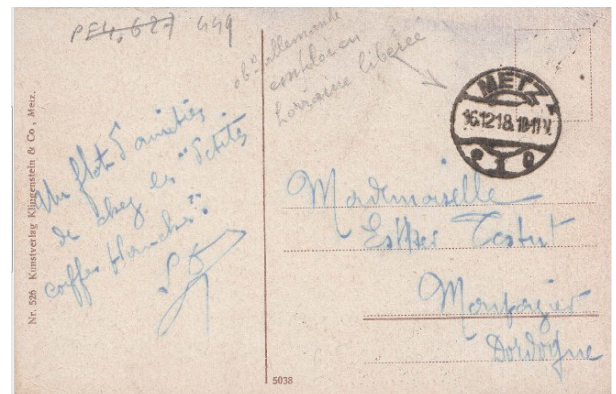 PE4,627 449
obᵒⁿ allemande
en
Lorraine libérée
METZ
16.12.18.10-11V.
* 1 o
Nr. 526 Kunstverlag Klingenstein & Co, Metz.
Un flot d'amitiés
de chez les "Petites
coiffes blanches".
Mademoiselle
Esther Testut
Monpazier
Dordogne
5038